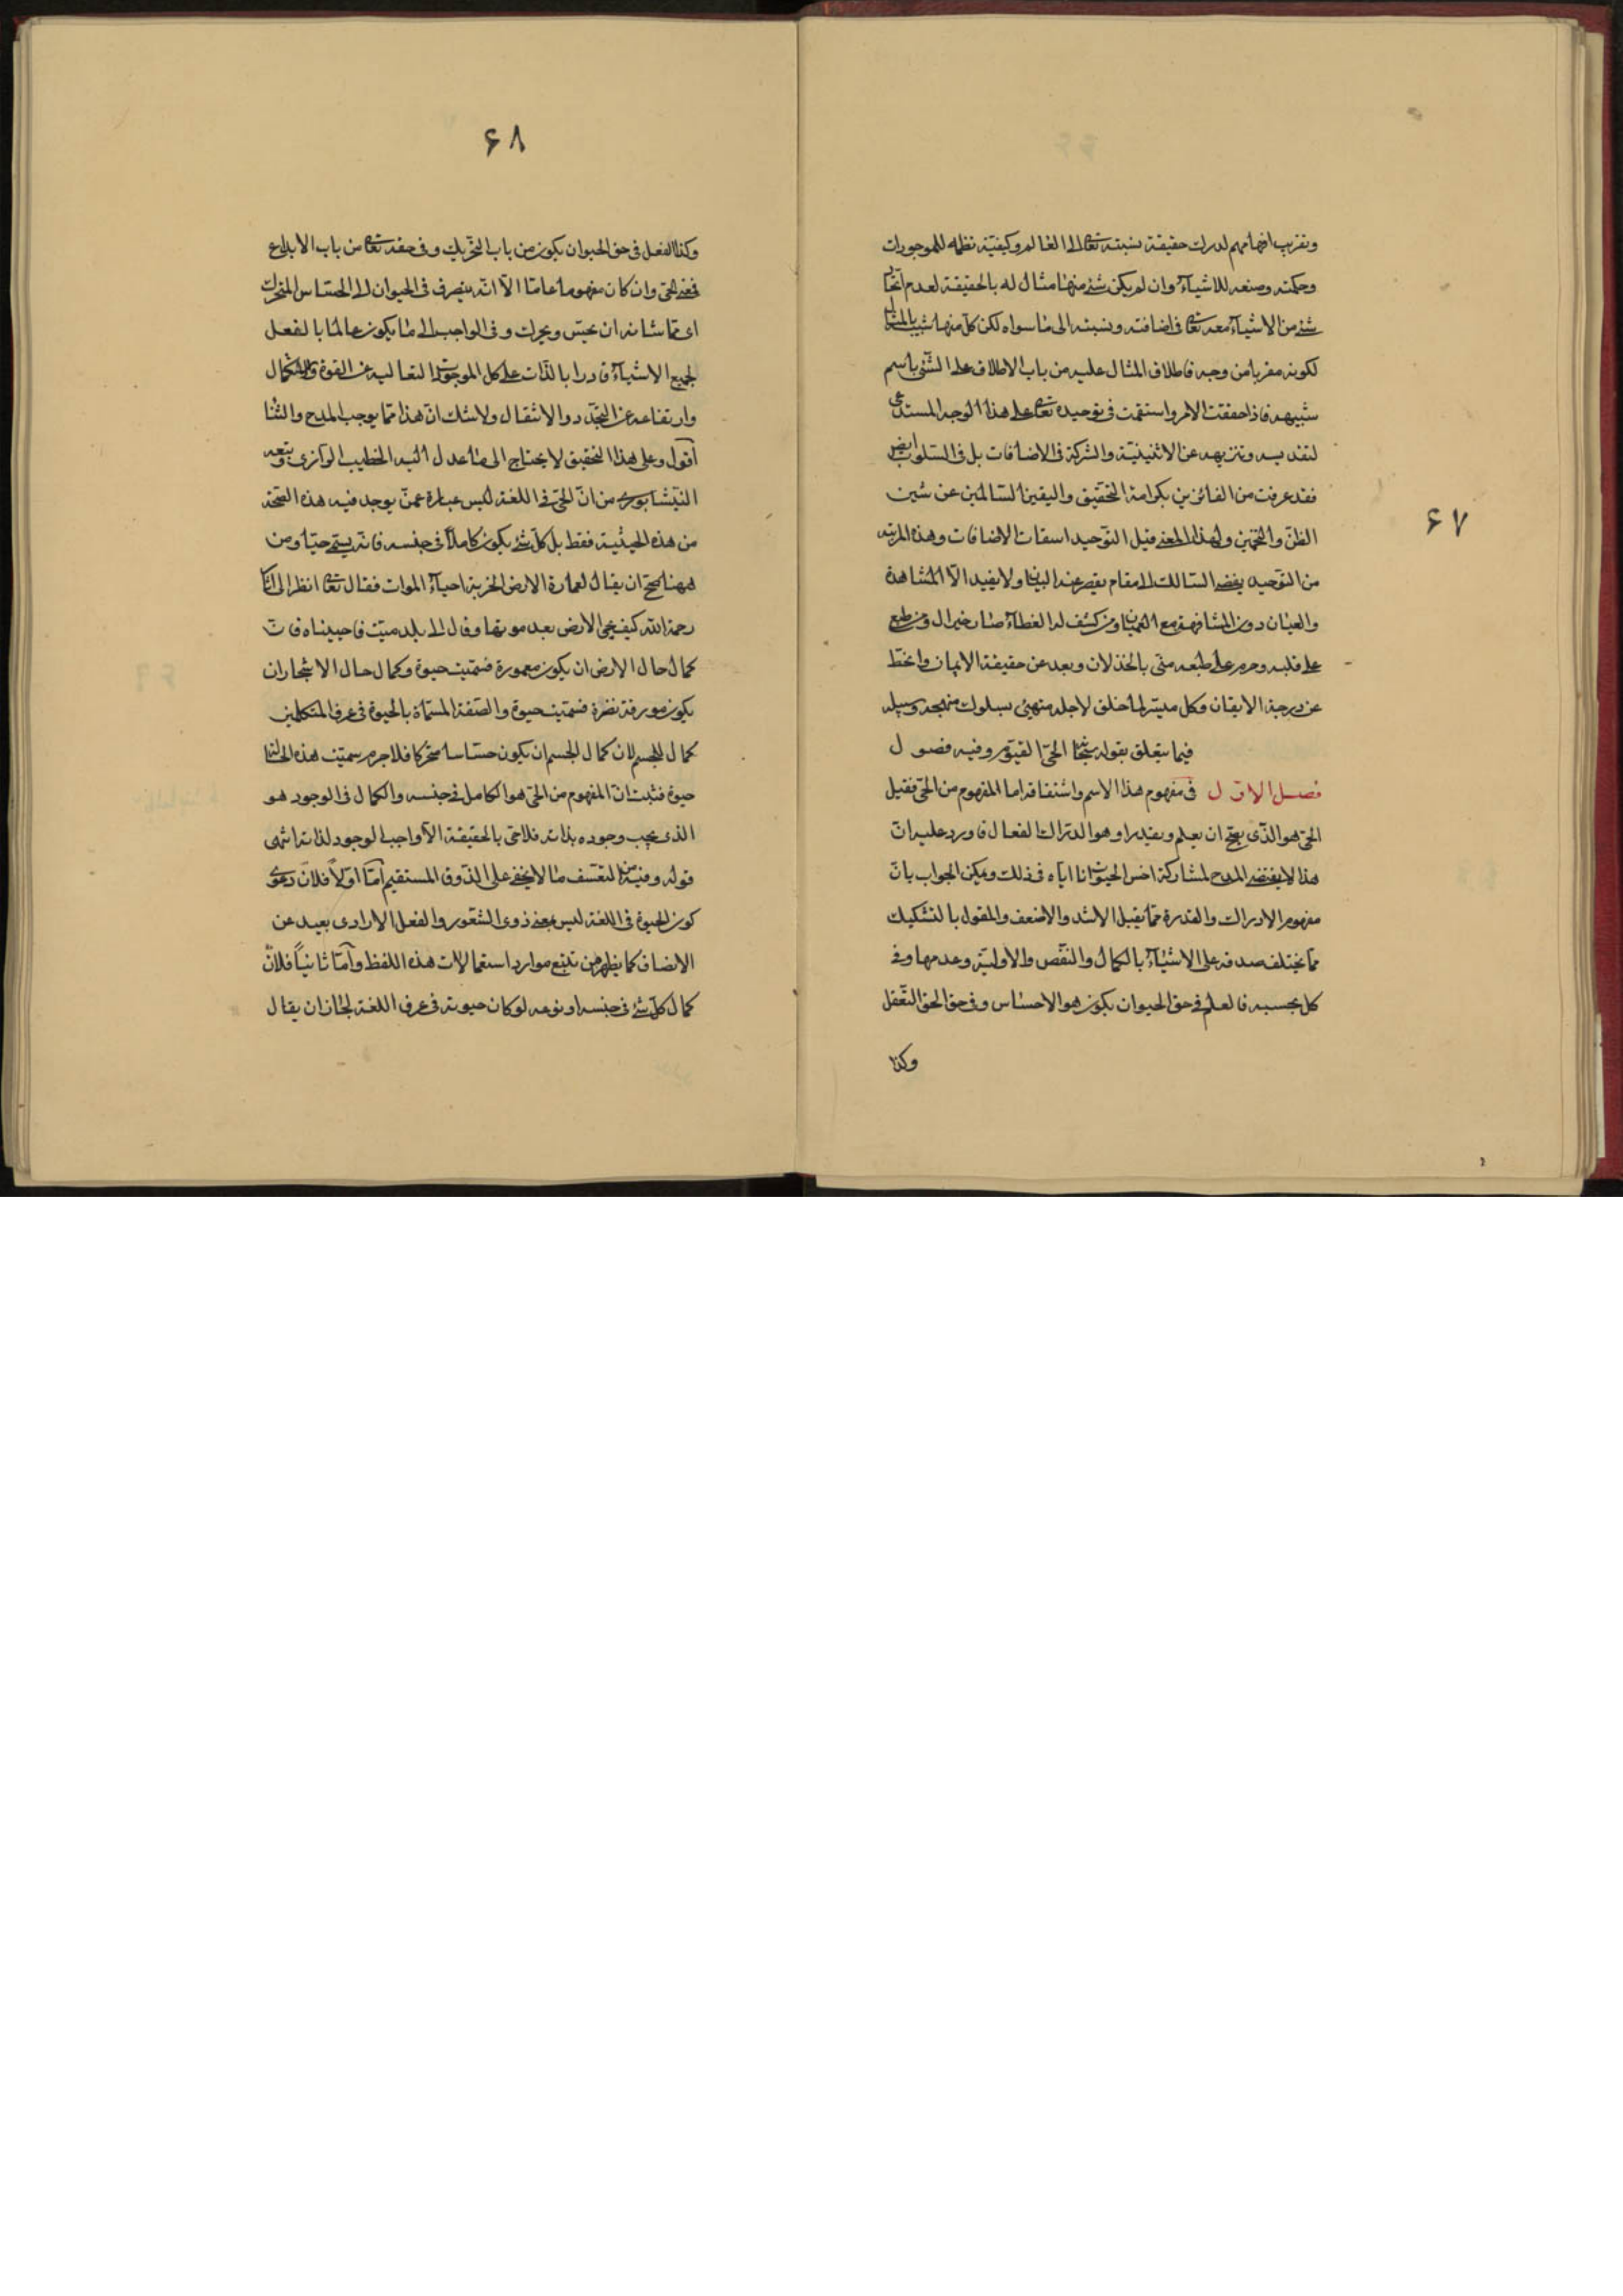 ۶۷
وتقريب افهامهم لدرك حقيقة نسبته تعالى الى العالم وكيفيّة نظمه للموجودات
وحكمته وصنعه للاشياء وان لم يكن شئ منها مثال له بالحقيقة لعدم
شئ من الاشياء معه تعالى فى اضافته ونسبته الى ما سواه لكن كلّ منها شبيه بالمثال
لكونه مقربا من وجه فاطلاق المثال عليه من باب الاطلاق على الشئ باسم
شبيهه فاذا حققت الامر واستقمت فى توحيده تعالى على هذا الوجه المستدعى
لتقديسه وتنزيهه عن الاثنينيّة والشركة فى الاضافات بل فى السلوب ايض
فقد عرفت من الفائزين بكرامة التحقيق واليقين السالمين عن شين
الظنّ والتخمين ولهذا المعنى قيل التوحيد اسقاط الاضافات وهذه المرتبه
من التوحيد يفضى السالك الى مقام يقصر عنه البيان ولا يفيد الّا المشاهدة
والعيان دون المشافهة مع العميان ومن كشف له الغطاء صار خير ال ومن طبع
على قلبه وحرم على طبعه منى بالخذلان وبعد عن حقيقة الايمان وانحطّ
عن درجة الايقان وكل ميسّر لما خلق لاجله منهيئ بسلوك منهجه وسبيله
فيما يتعلق بقوله سبحانه الحىّ القيّوم وفيه فصول
فصل الاوّل فى مفهوم هذا الاسم واشتقاقه اما المفهوم من الحىّ فقيل
الحىّ هو الذى يصحّ ان يعلم ويقدر او هو الدرّاك الفعال فاورد عليه انّ
هذا لا يقتضى المدح لمشاركة اخسّ الحيوانات اياه فى ذلك ويمكن الجواب بانّ
مفهوم الادراك والقدرة ممّا يقبل الاشد والاضعف والمقول بالتشكيك
ممّا يختلف صدقه على الاشياء بالكمال والنقص والاوليّة وعدمها وفى
كل بحسبه فالعلم فى حق الحيوان يكون هو الاحساس وفى حق الحق التعقل
وكذا
۶۸
وكذا الفعل فى حق الحيوان يكون من باب التحريك وفى حقه تعالى من باب الابداع
فمعنى الحىّ وان كان مفهوما عامّا الّا انّه ينصرف فى الحيوان الى الحسّاس المتحرك
اى ممّا شانه ان يحسّ ويحرك وفى الواجب الى ما يكون عالما بالفعل
لجميع الاشياء قادرا بالذّات على كل الموجودات لتعاليه عن القوة والاستكمال
وارتفاعه عن التجدّد والانتقال ولا شك انّ هذا ممّا يوجب المدح والثّنا
اقول وعلى هذا التحقيق لا يحتاج الى ما عدل اليه الخطيب الرازى وتبعه
النيّشابورى من انّ الحىّ فى اللغة ليس عبارة عمّن يوجد فيه هذه الصّحة
من هذه الحيثية فقط بل كلّ شئ يكون كاملا فى جنسه فانه يسمّى حيّا ومن
ههنا صحّ ان يقال لعمارة الارض الخربة احياء الموات فقال تعالى انظر الى اثار
رحمة الله كيف يحى الارض بعد موتها وقال الى بلد ميّت فاحييناه فانّ
كمال حال الارض ان يكون معمورة فسمّيت حيوة وكمال حال الاشجار ان
يكون مورقة نضرة فسمّيت حيوة والصّفة المسمّاة بالحيوة فى عرف المتكلمين
كمال للجسم لانّ كمال الجسم ان يكون حسّاسا متحركا فلا جرم سمّيت هذه الحالة
حيوة فثبت انّ المفهوم من الحىّ هو الكامل فى جنسه والكمال فى الوجود هو
الذى يجب وجوده بذاته فلا حىّ بالحقيقة الّا واجب الوجود لذاته انتهى
قوله وفيه من التعسّف ما لا يخفى على الذوق المستقيم امّا اوّلاً فلانّ دعوى
كون الحيوة فى اللغة ليس بمعنى ذوى الشّعور والفعل الارادى بعيد عن
الانصاف كما يظهر من تتبع موارد استعمالات هذه اللفظ وامّا ثانياً فلانّ
كمال كلّ شئ فى جنسه او نوعه لو كان حيوته فى عرف اللغة لجاز ان يقال